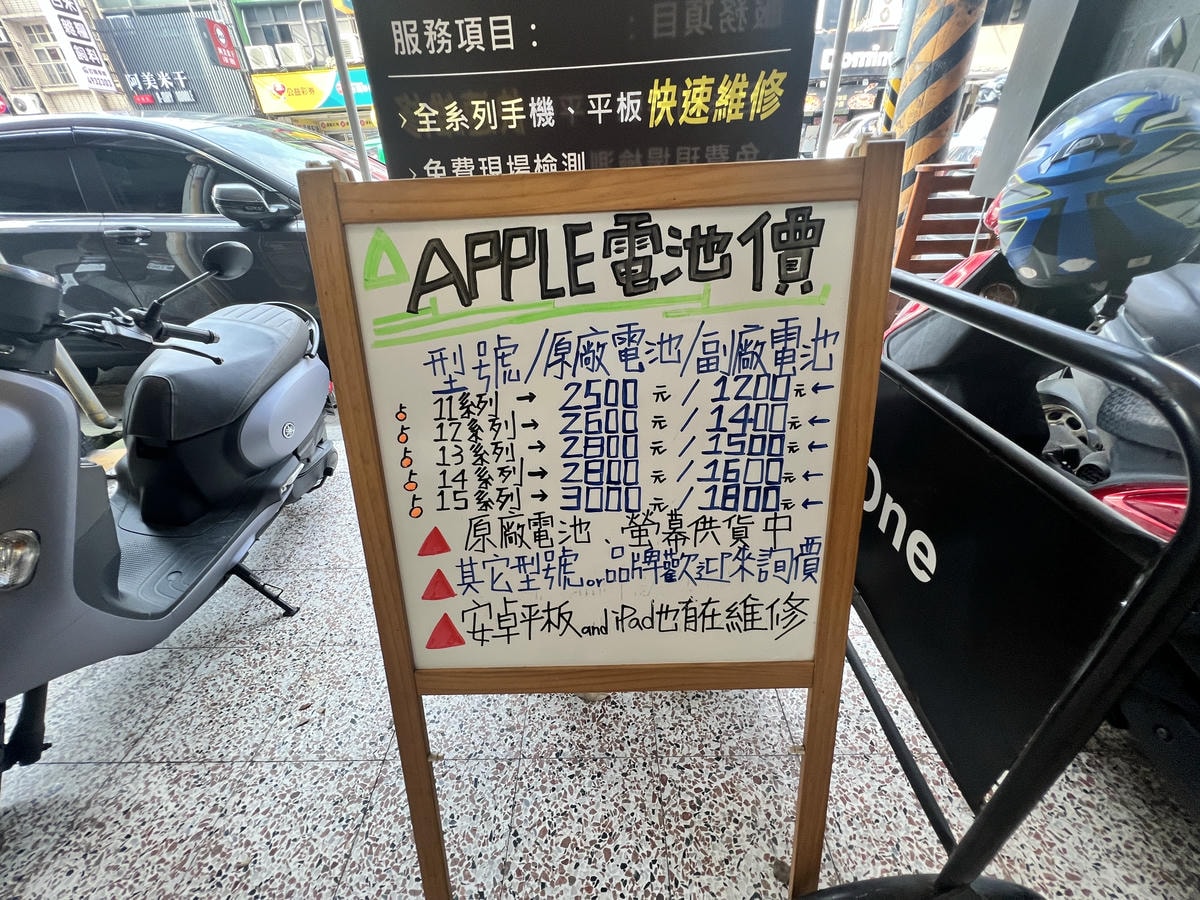 服務項目：
›全系列手機、平板快速維修
›免費現場檢測
阿美米干
公益彩券
APPLE電池價
型號/原廠電池/副廠電池
11系列→2500元/1200元←
12系列→2600元/1400元←
13系列→2800元/1500元←
14系列→2800元/1600元←
15系列→3000元/1800元←
原廠電池、螢幕供貨中
其它型號or品牌歡迎來詢價
安卓平板and iPad也有在維修
One